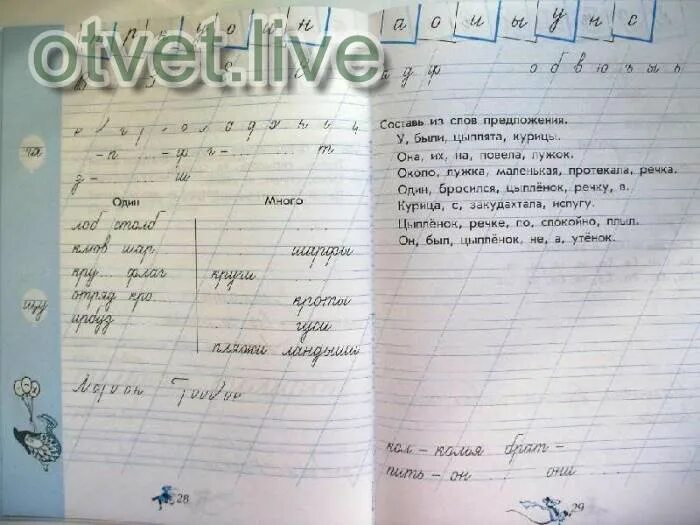 р к у о и н
а о и ы у н с
otvet.live
а д ф о б в ю ъ ы ь
ча
- п ... - ф г - ... т
з - ... ш
Один Много
лоб столб
клюв шар... шарфы
кру... флаг круги
отряд кро... кроты
арбуз гуси
пляжи ландыши
щу
28
Составь из слов предложения.
У, были, цыплята, курицы.
Она, их, на, повела, лужок.
Около, лужка, маленькая, протекала, речка.
Один, бросился, цыплёнок, речку, в.
Курица, с, закудахтала, испугу.
Цыплёнок, речке, по, спокойно, плыл.
Он, был, цыплёнок, не, а, утёнок.
кол - колья брат -
пить - он они
29